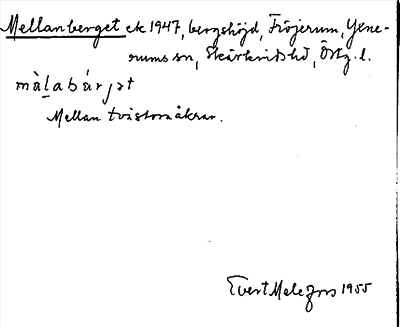 Mellanberget ek 1947, bergshöjd, Fröjerum, Yxne-
rums sn, Skärkinds hd, Östg. l.
màl̠abár̡ət
Mellan två stora åkrar.
Evert Melefors 1955